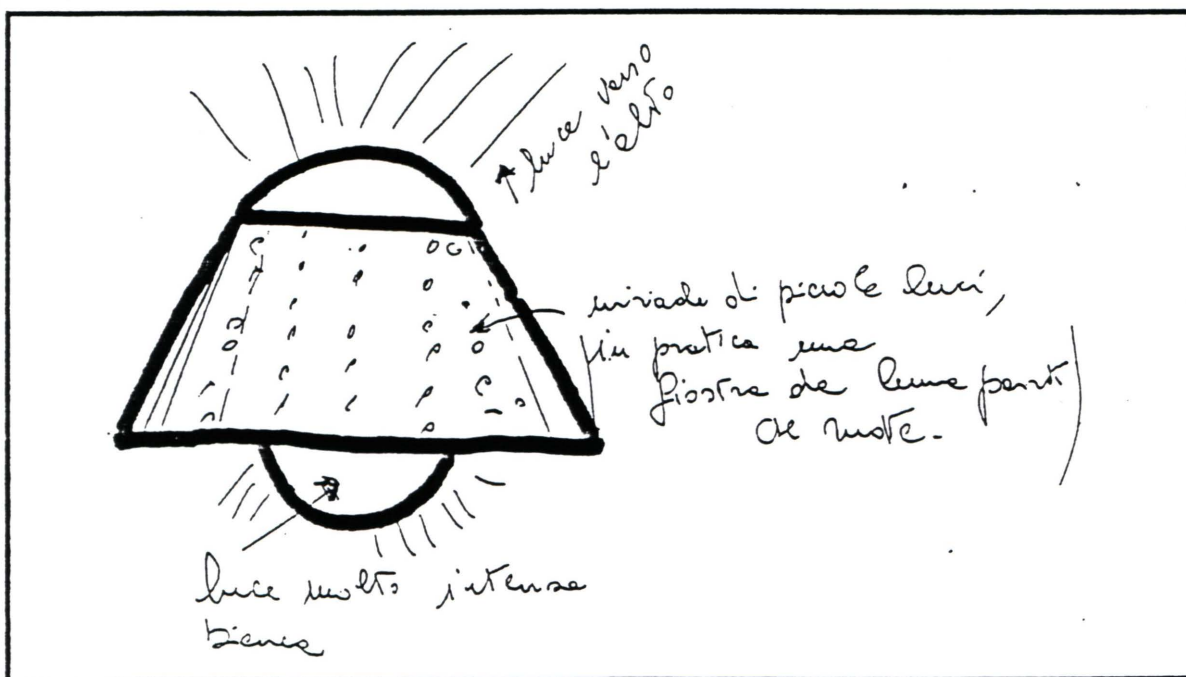 luce verso
l'alto
miriade di piccole luci,
in pratica una
giostra da luna park
luce molto intensa
bianca